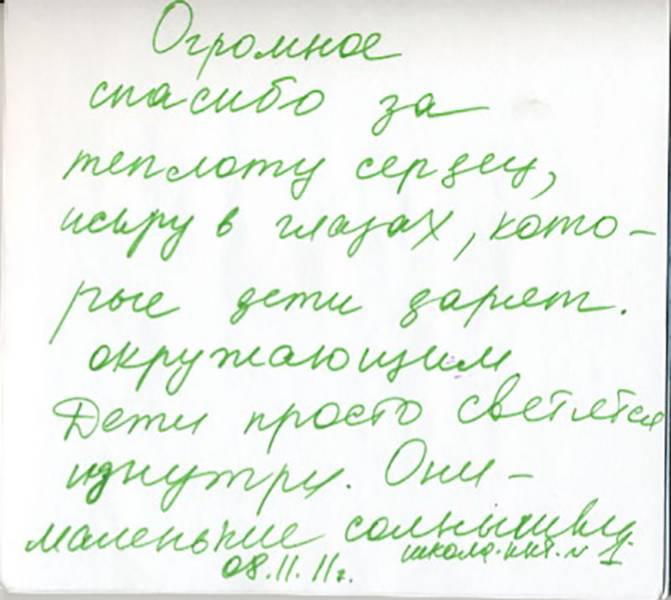 Огромное
спасибо за
теплоту сердец,
искру в глазах, кото-
рые дети дарят.
окружающим
Дети просто светятся
изнутри. Они -
маленькие солнышки.
школа-инт. № 1
08.11.11г.